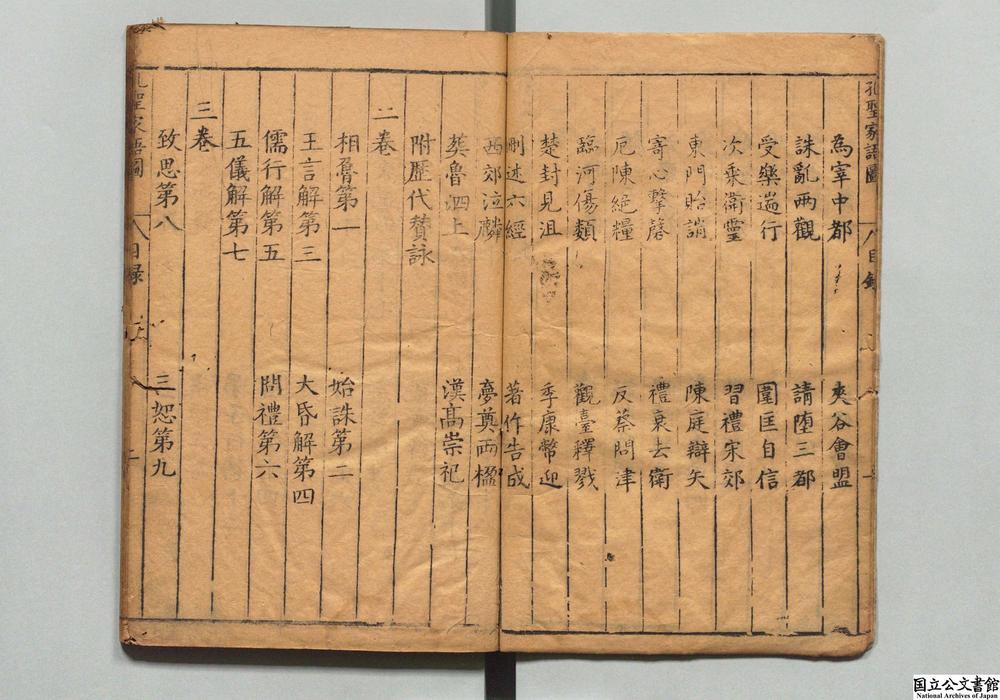 孔聖家語圖 目錄
為宰中都 夾谷會盟
誅亂兩觀 請墮三都
受樂遄行 圍匡自信
次乘衛靈 習禮宋郊
東門貽誚 陳庭辯矢
寄心擊磬 禮衰去衛
厄陳絕糧 反蔡問津
臨河傷類 觀臺釋戮
楚封見沮 季康幣迎
刪述六經 著作告成
西郊泣麟 夢奠兩楹
葬魯泗上 漢高崇祀
附歷代贊詠
二卷
相魯第一 始誅第二
王言解第三 大昏解第四
儒行解第五 問禮第六
五儀解第七
三卷
致思第八 三恕第九
孔聖家語圖 目錄
国立公文書館
National Archives of Japan